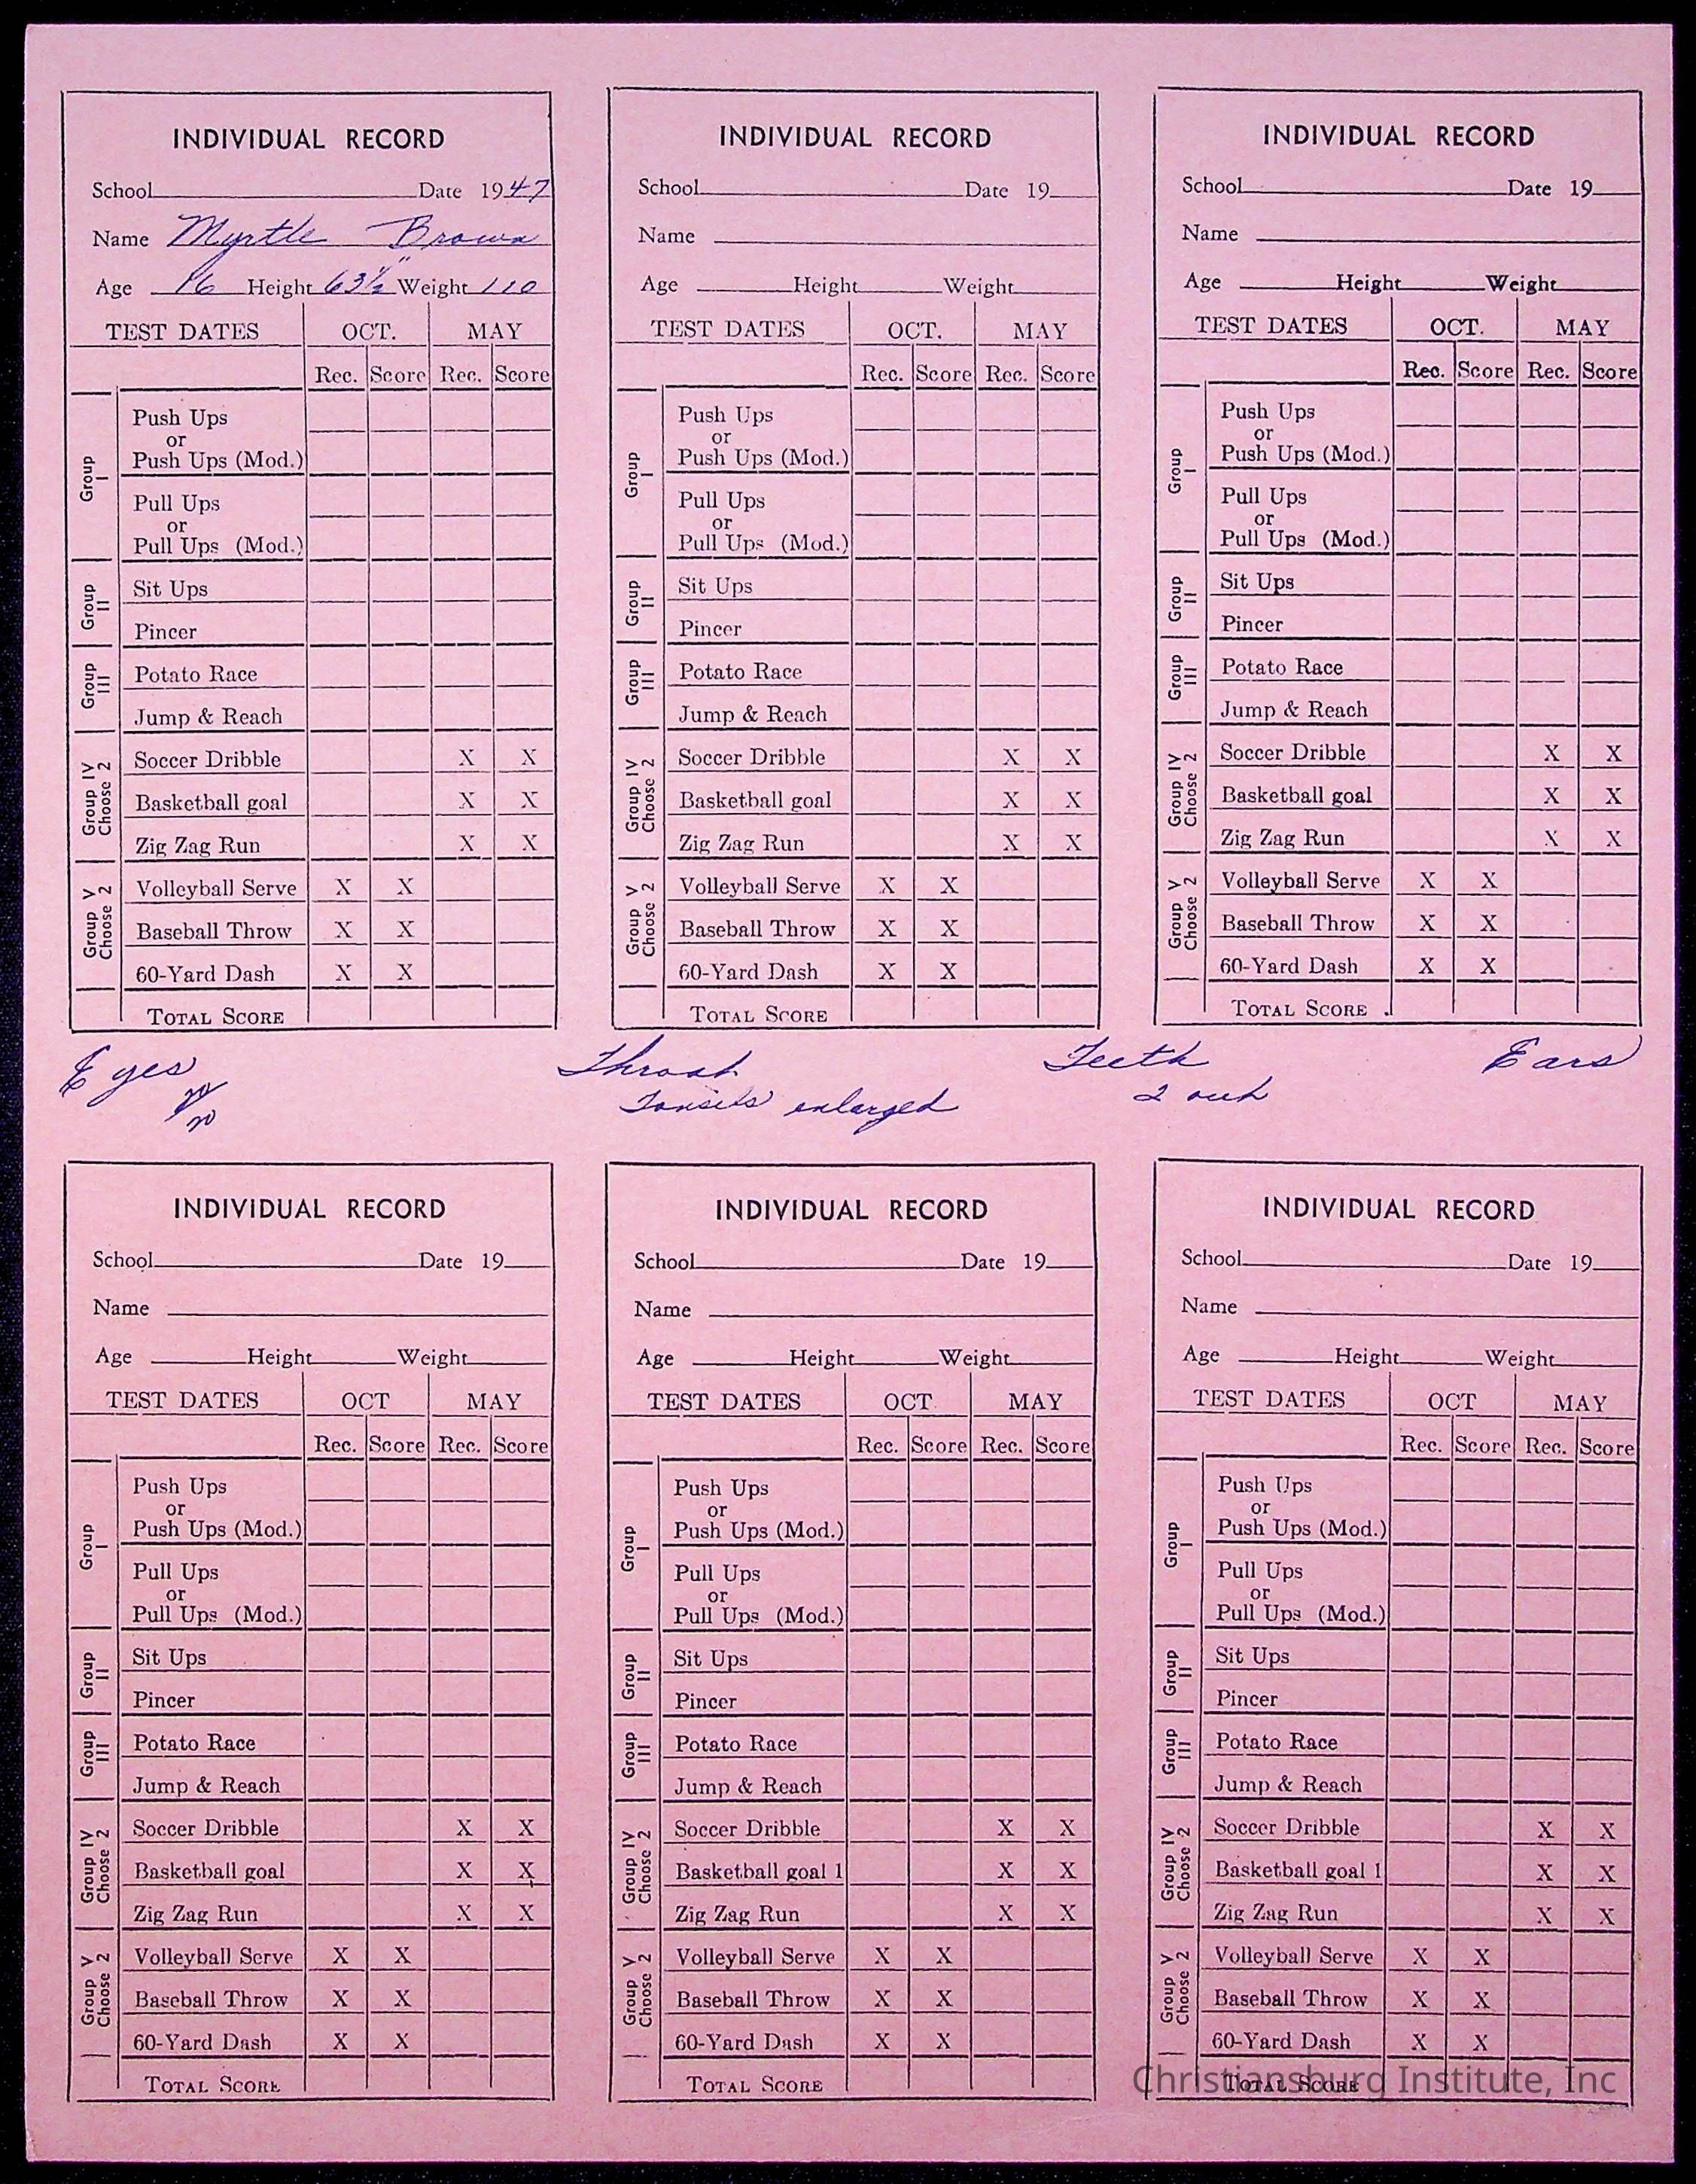 INDIVIDUAL RECORD
School Date 1947
Name Myrtle Brown
Age 16 Height 63½" Weight 110
TEST DATES OCT. MAY
Rec. Score Rec. Score
Group I
Push Ups
or
Push Ups (Mod.)
Pull Ups
or
Pull Ups (Mod.)
Group II
Sit Ups
Pincer
Group III
Potato Race
Jump & Reach
Group IV Choose 2
Soccer Dribble X X
Basketball goal X X
Zig Zag Run X X
Group V Choose 2
Volleyball Serve X X
Baseball Throw X X
60-Yard Dash X X
TOTAL SCORE
INDIVIDUAL RECORD
School Date 19
Name
Age Height Weight
TEST DATES OCT. MAY
Rec. Score Rec. Score
Group I
Push Ups
or
Push Ups (Mod.)
Pull Ups
or
Pull Ups (Mod.)
Group II
Sit Ups
Pincer
Group III
Potato Race
Jump & Reach
Group IV Choose 2
Soccer Dribble X X
Basketball goal X X
Zig Zag Run X X
Group V Choose 2
Volleyball Serve X X
Baseball Throw X X
60-Yard Dash X X
TOTAL SCORE
INDIVIDUAL RECORD
School Date 19
Name
Age Height Weight
TEST DATES OCT. MAY
Rec. Score Rec. Score
Group I
Push Ups
or
Push Ups (Mod.)
Pull Ups
or
Pull Ups (Mod.)
Group II
Sit Ups
Pincer
Group III
Potato Race
Jump & Reach
Group IV Choose 2
Soccer Dribble X X
Basketball goal X X
Zig Zag Run X X
Group V Choose 2
Volleyball Serve X X
Baseball Throw X X
60-Yard Dash X X
TOTAL SCORE
Eyes Throat Teeth Ears
Tonsils enlarged 2 out
INDIVIDUAL RECORD
School Date 19
Name
Age Height Weight
TEST DATES OCT MAY
Rec. Score Rec. Score
Group I
Push Ups
or
Push Ups (Mod.)
Pull Ups
or
Pull Ups (Mod.)
Group II
Sit Ups
Pincer
Group III
Potato Race
Jump & Reach
Group IV Choose 2
Soccer Dribble X X
Basketball goal X X
Zig Zag Run X X
Group V Choose 2
Volleyball Serve X X
Baseball Throw X X
60-Yard Dash X X
TOTAL SCORE
INDIVIDUAL RECORD
School Date 19
Name
Age Height Weight
TEST DATES OCT MAY
Rec. Score Rec. Score
Group I
Push Ups
or
Push Ups (Mod.)
Pull Ups
or
Pull Ups (Mod.)
Group II
Sit Ups
Pincer
Group III
Potato Race
Jump & Reach
Group IV Choose 2
Soccer Dribble X X
Basketball goal 1 X X
Zig Zag Run X X
Group V Choose 2
Volleyball Serve X X
Baseball Throw X X
60-Yard Dash X X
TOTAL SCORE
INDIVIDUAL RECORD
School Date 19
Name
Age Height Weight
TEST DATES OCT MAY
Rec. Score Rec. Score
Group I
Push Ups
or
Push Ups (Mod.)
Pull Ups
or
Pull Ups (Mod.)
Group II
Sit Ups
Pincer
Group III
Potato Race
Jump & Reach
Group IV Choose 2
Soccer Dribble X X
Basketball goal 1 X X
Zig Zag Run X X
Group V Choose 2
Volleyball Serve X X
Baseball Throw X X
60-Yard Dash X X
TOTAL SCORE
Christiansburg Institute, Inc